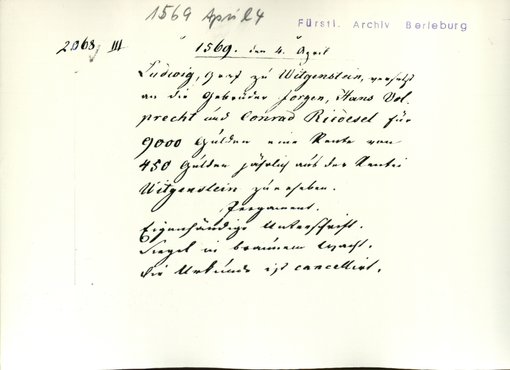 1569 April 4
Fürstl. Archiv Berleburg
2068 III
1569. den 4. April
Ludwig, Graf zu Witgenstein, versetzt
an die Gebrüder Jorgen, Hans Vol-
precht und Conrad Riedesel für
9000 Gulden eine Rente von
450 Gulden jährlich aus der Rentei
Witgenstein zu erheben.
Pergament.
Eigenhändige Unterschrift.
Siegel in braunem Wachs.
Die Urkunde ist cancellirt.